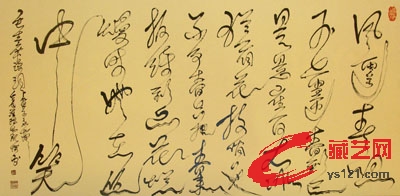 风雨送春归
飞雪迎春到已
是悬崖百丈冰
犹有花枝俏俏
也不争春只把春来
报待到山花烂
漫时她在丛
中笑
藏艺网
ys121.com